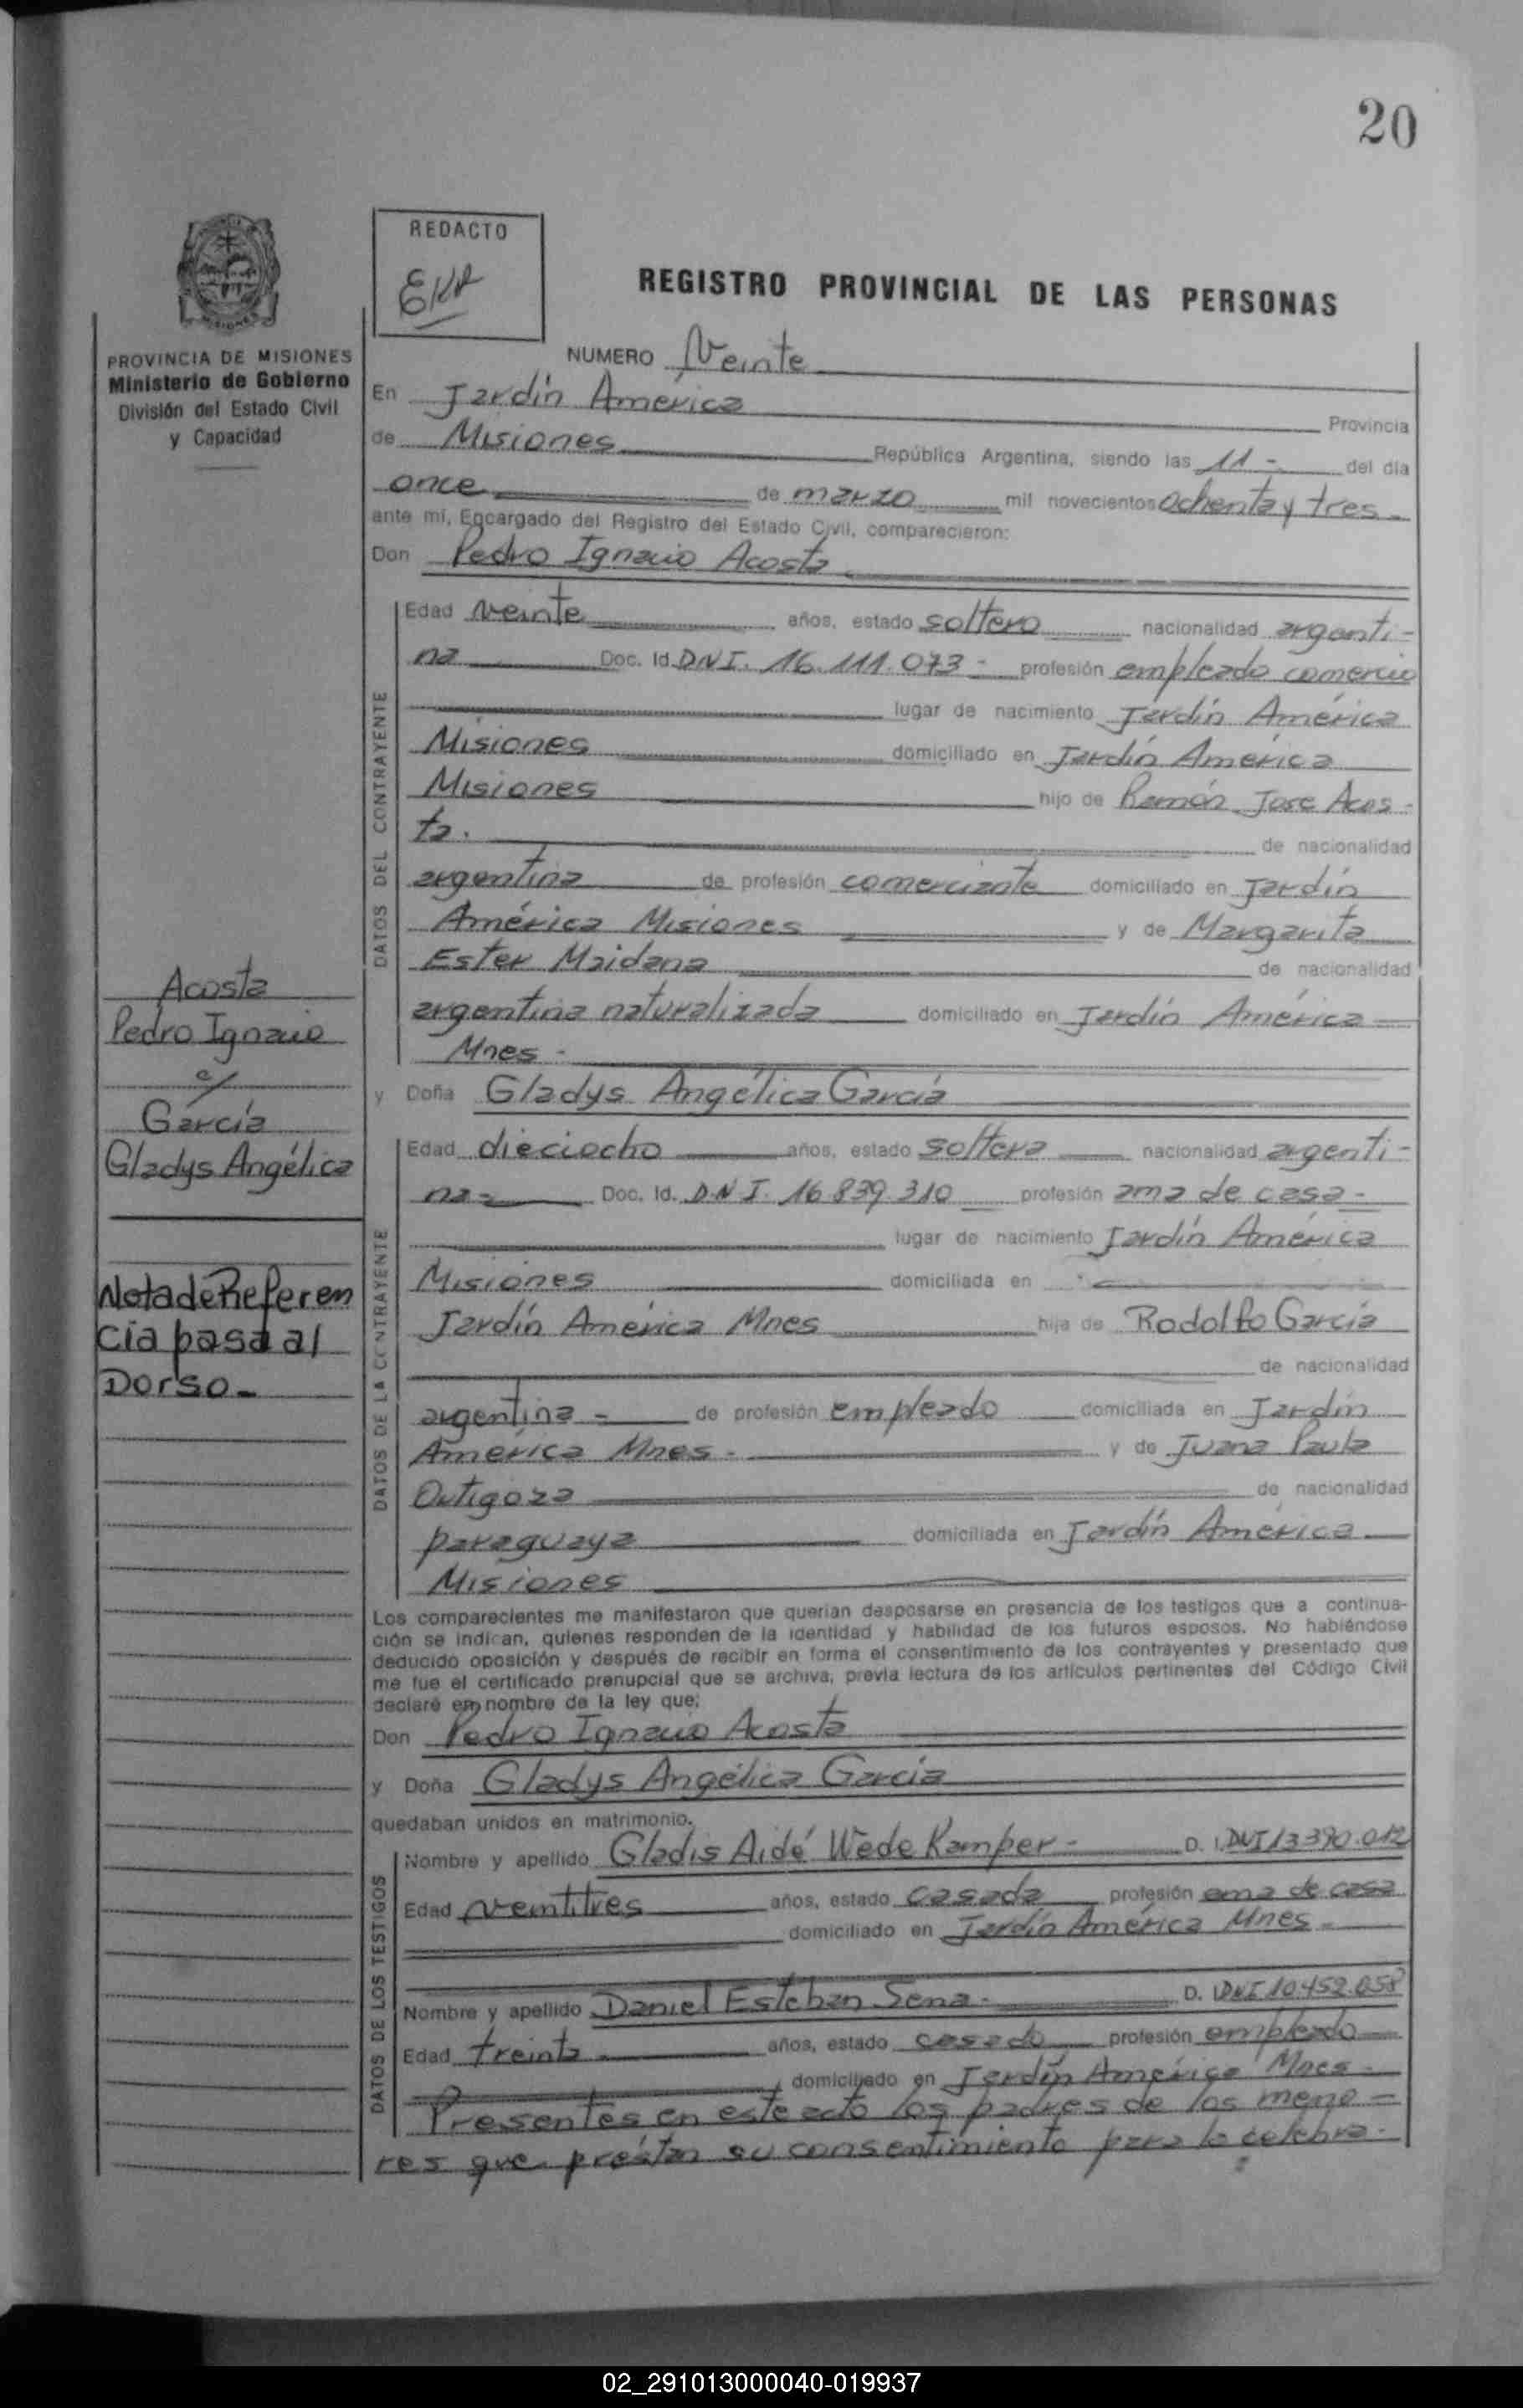 20
REDACTO
REGISTRO PROVINCIAL DE LAS PERSONAS
PROVINCIA DE MISIONES
Ministerio de Gobierno
División del Estado Civil
y Capacidad
NUMERO Veinte
En Jardín America Provincia
de Misiones República Argentina, siendo las 11 - del día
once de marzo mil novecientos ochenta y tres -
ante mí, Encargado del Registro del Estado Civil, comparecieron:
Don Pedro Ignacio Acosta
DATOS DEL CONTRAYENTE
Edad veinte años, estado soltero nacionalidad argenti-
na Doc. Id. DNI. 16.111.073 - profesión empleado comercio
lugar de nacimiento Jardín América
Misiones domiciliado en Jardín América
Misiones hijo de Ramón Jose Acos-
ta. de nacionalidad
argentina de profesión comerciante domiciliado en Jardín
América Misiones y de Margarita
Ester Maidana de nacionalidad
argentina naturalizada domiciliado en Jardín América
Mnes -
y Doña Gladys Angélica García
DATOS DE LA CONTRAYENTE
Edad dieciocho años, estado soltera nacionalidad argenti-
na- Doc. Id. D.N.I. 16.839.310 profesión ama de casa -
lugar de nacimiento Jardín América
Misiones domiciliada en
Jardín América Mnes hija de Rodolfo García
de nacionalidad
argentina - de profesión empleado domiciliada en Jardín
América Mnes - y de Juana Paula
Ortigoza de nacionalidad
paraguaya domiciliada en Jardín América
Misiones
Los comparecientes me manifestaron que querían desposarse en presencia de los testigos que a continua-
ción se indican, quienes responden de la identidad y habilidad de los futuros esposos. No habiéndose
deducido oposición y después de recibir en forma el consentimiento de los contrayentes y presentado que
me fue el certificado prenupcial que se archiva, previa lectura de los artículos pertinentes del Código Civil
declaré en nombre de la ley que:
Don Pedro Ignacio Acosta
y Doña Gladys Angélica García
quedaban unidos en matrimonio.
DATOS DE LOS TESTIGOS
Nombre y apellido Gladis Aidé Wede Kamper - D. I. DNI 13.390.012
Edad veintitres años, estado casada profesión ama de casa
domiciliado en Jardín América Mnes -
Nombre y apellido Daniel Esteban Sena - D. I. DNI 10.452.058
Edad treinta años, estado casado profesión empleado
domiciliado en Jardín América Mnes -
Presentes en este acto los padres de los meno-
res que prestan su consentimiento para la celebra-
Acosta
Pedro Ignacio
c/
García
Gladys Angélica
Nota de Referen
cia pasa al
Dorso -
02_291013000040-019937